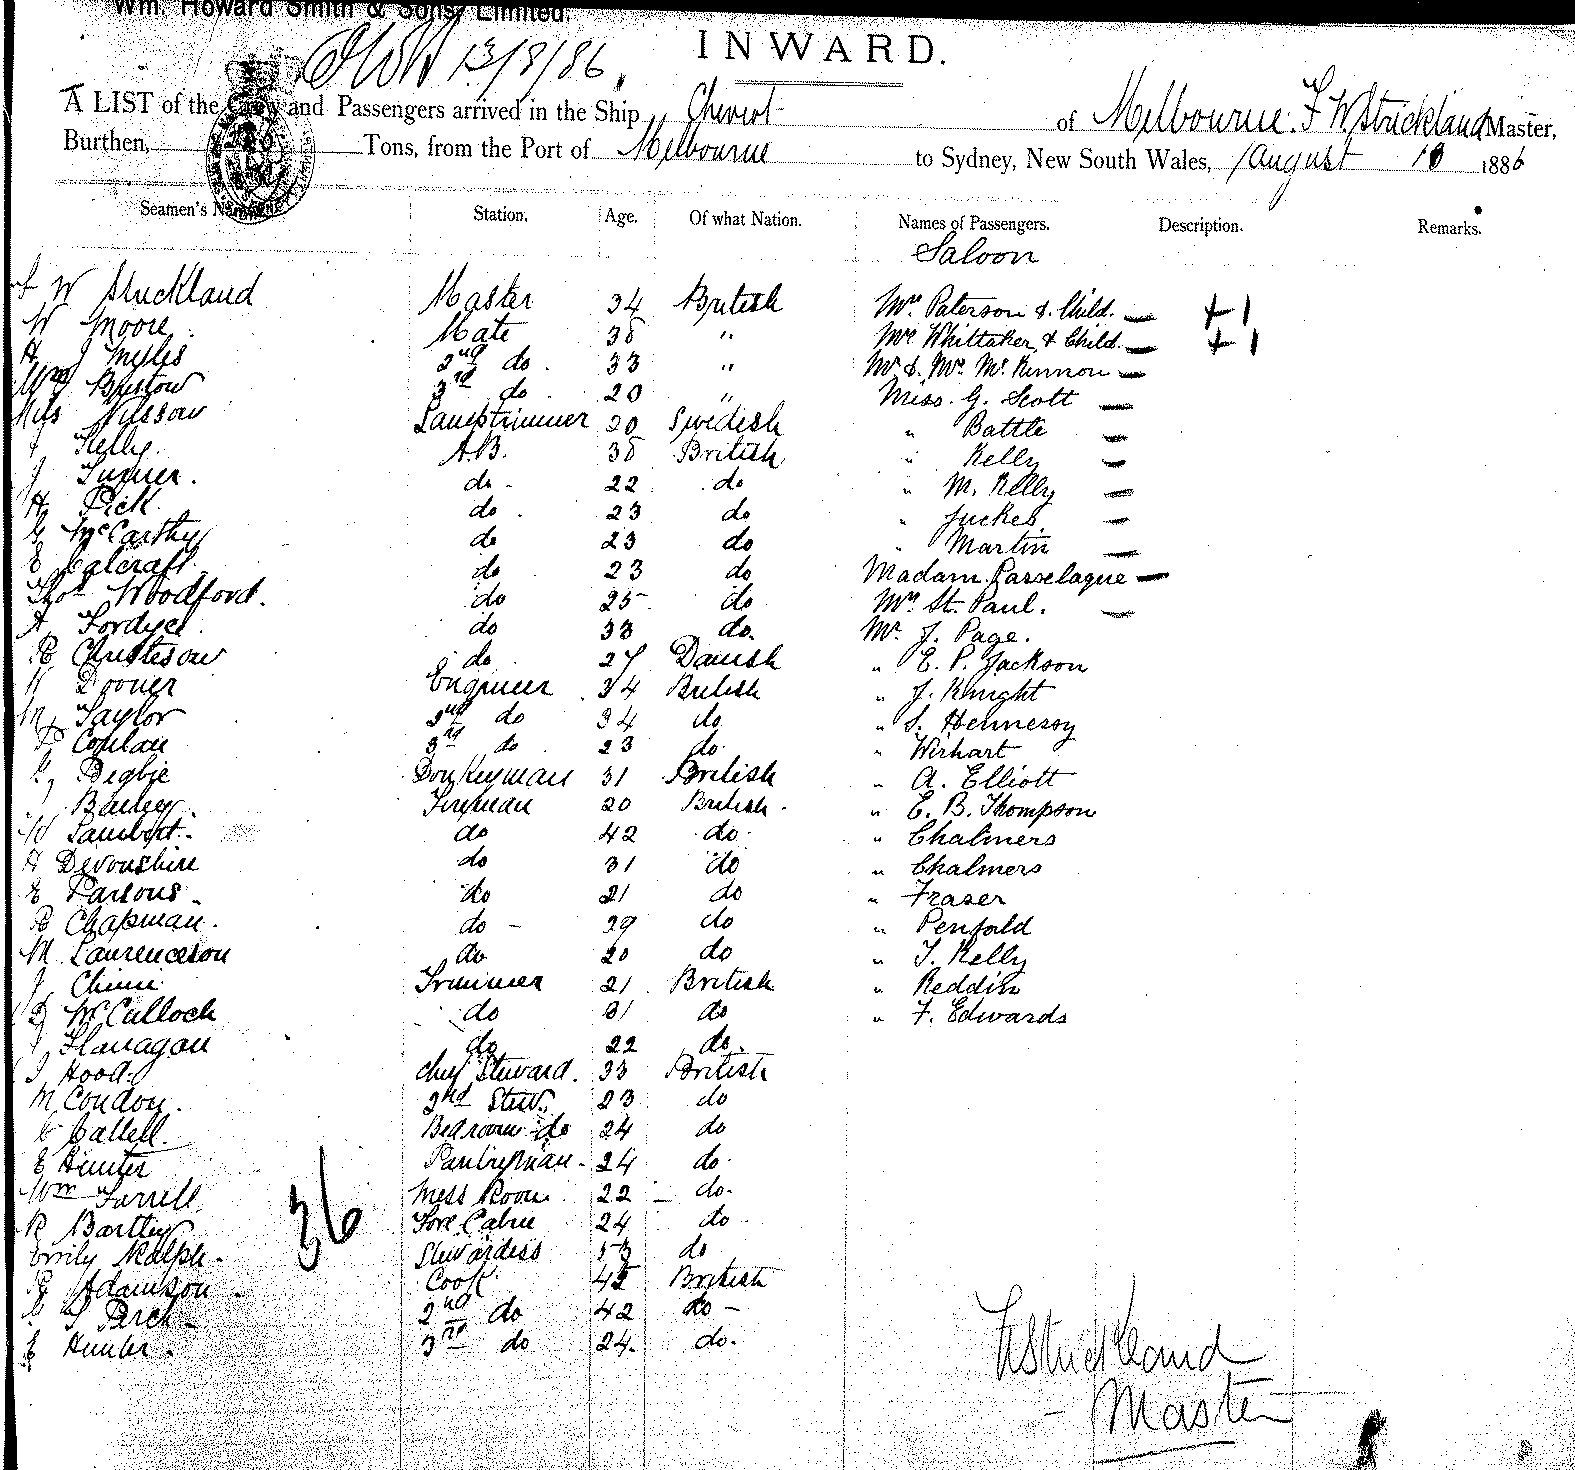 Wm. Howard Smith & Sons, Limited.
13/8/86
INWARD.
A LIST of the Crew and Passengers arrived in the Ship Cheviot of Melbourne. F W Strickland Master,
Burthen, Tons, from the Port of Melbourne to Sydney, New South Wales, August 1886
Seamen's Names. Station. Age. Of what Nation. Names of Passengers. Description. Remarks.
Saloon
F W Strickland Master 34 British Mrs Paterson & Child. — + 1
W Moore Mate 38 " Mrs Whittaker & Child. — + 1
H J Mylis 2nd do. 33 " Mr. & Mrs. Mc.Kinnon —
Wm Bristow 3rd do 20 " Miss. G. Scott —
Nils Nilsson Lamptrimmer 20 Swedish " Battle —
Kelly. A.B. 38 British " Kelly —
J Turner. do - 22 do " M. Kelly —
H Pick do. 23 do " Juckes —
McCarthy do 23 do " Martin —
E Calcraft. do 23 do Madam. Passelague —
Thos Woodford. do 25 do Mrs. St. Paul. —
A Fordyce. do 33 do. Mr. J. Page.
Christeson do 27 Danish " E. P. Jackson
Doover Engineer 34 British " J. Knight
M Taylor 2nd do 34 do " S. Hennessy
P Conlan 3rd do 23 do. " Wishart
Begbie Donkeyman 31 British " A. Elliott
Bailey. Fireman 20 British. " E. B. Thompson
W Lambert. do 42 do. " Chalmers
H Devonshire do 31 do " Chalmers
E Parsons. do 21 do " Fraser
Chapman. do - 29 do " Penfold
M Laurenceson do 20 do " T. Kelly
J Chinn Trimmer 21 British " Reddin
D McCulloch do 31 do " F. Edwards
Flanagan do 22 do.
Hood. Chief Steward. 33 British
M Condon. 2nd Stew. 23 do
Cattell. Bedroom do 24 do
E Hunter Pantryman - 24 do.
Wm Farrell Mess Room 22 - do.
R Bartley Fore Cabin 24 do
Emily Ralph. Stewardess 53 do
Adamson. Cook 45 British
Perch 2nd do 42 do -
E Hunter. 3rd do 24. do.
36
F W Strickland
Master